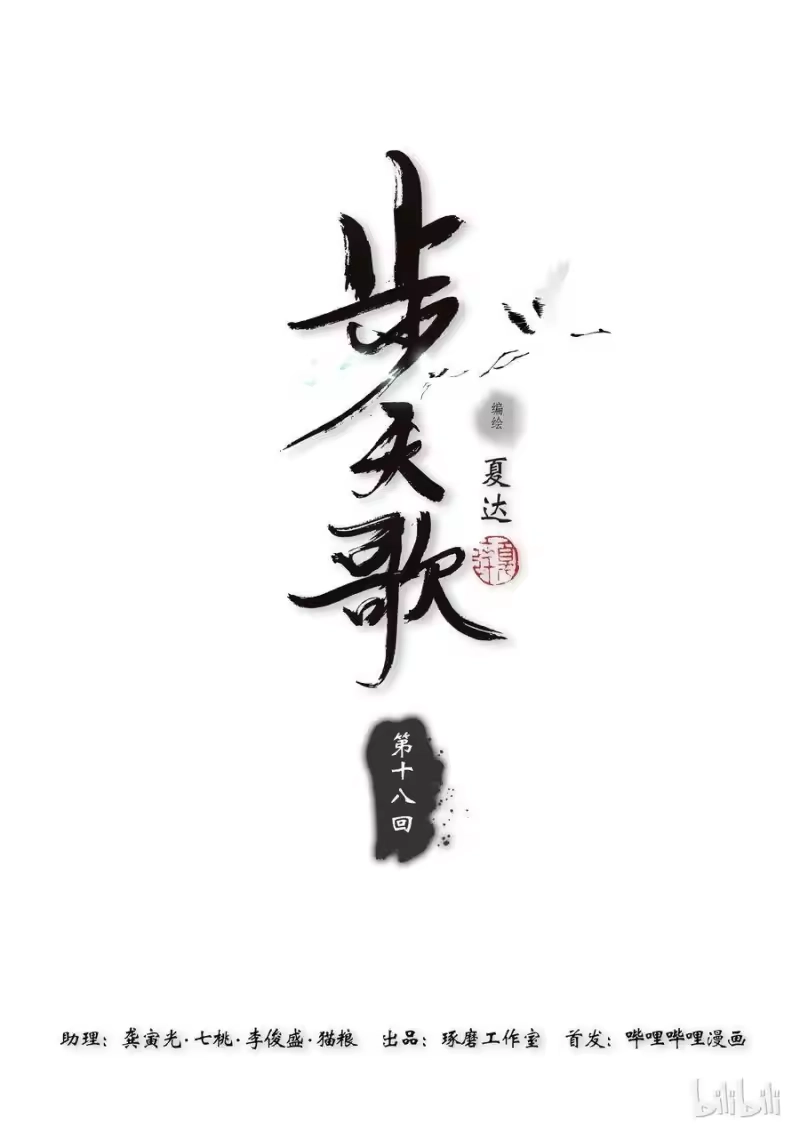 步天歌
编绘
夏达
夏达
第十八回
助理：龚寅光·七桃·李俊盛·猫粮 出品：琢磨工作室 首发：哔哩哔哩漫画
bilibili